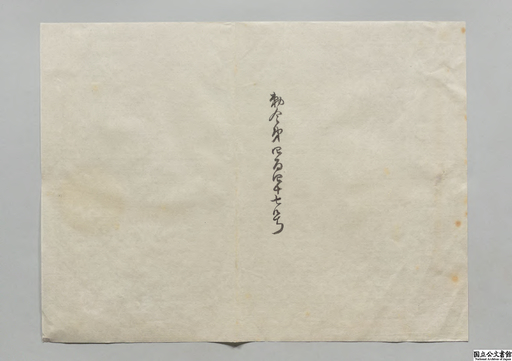 勅令第四百四十七号
国立公文書館
National Archives of Japan